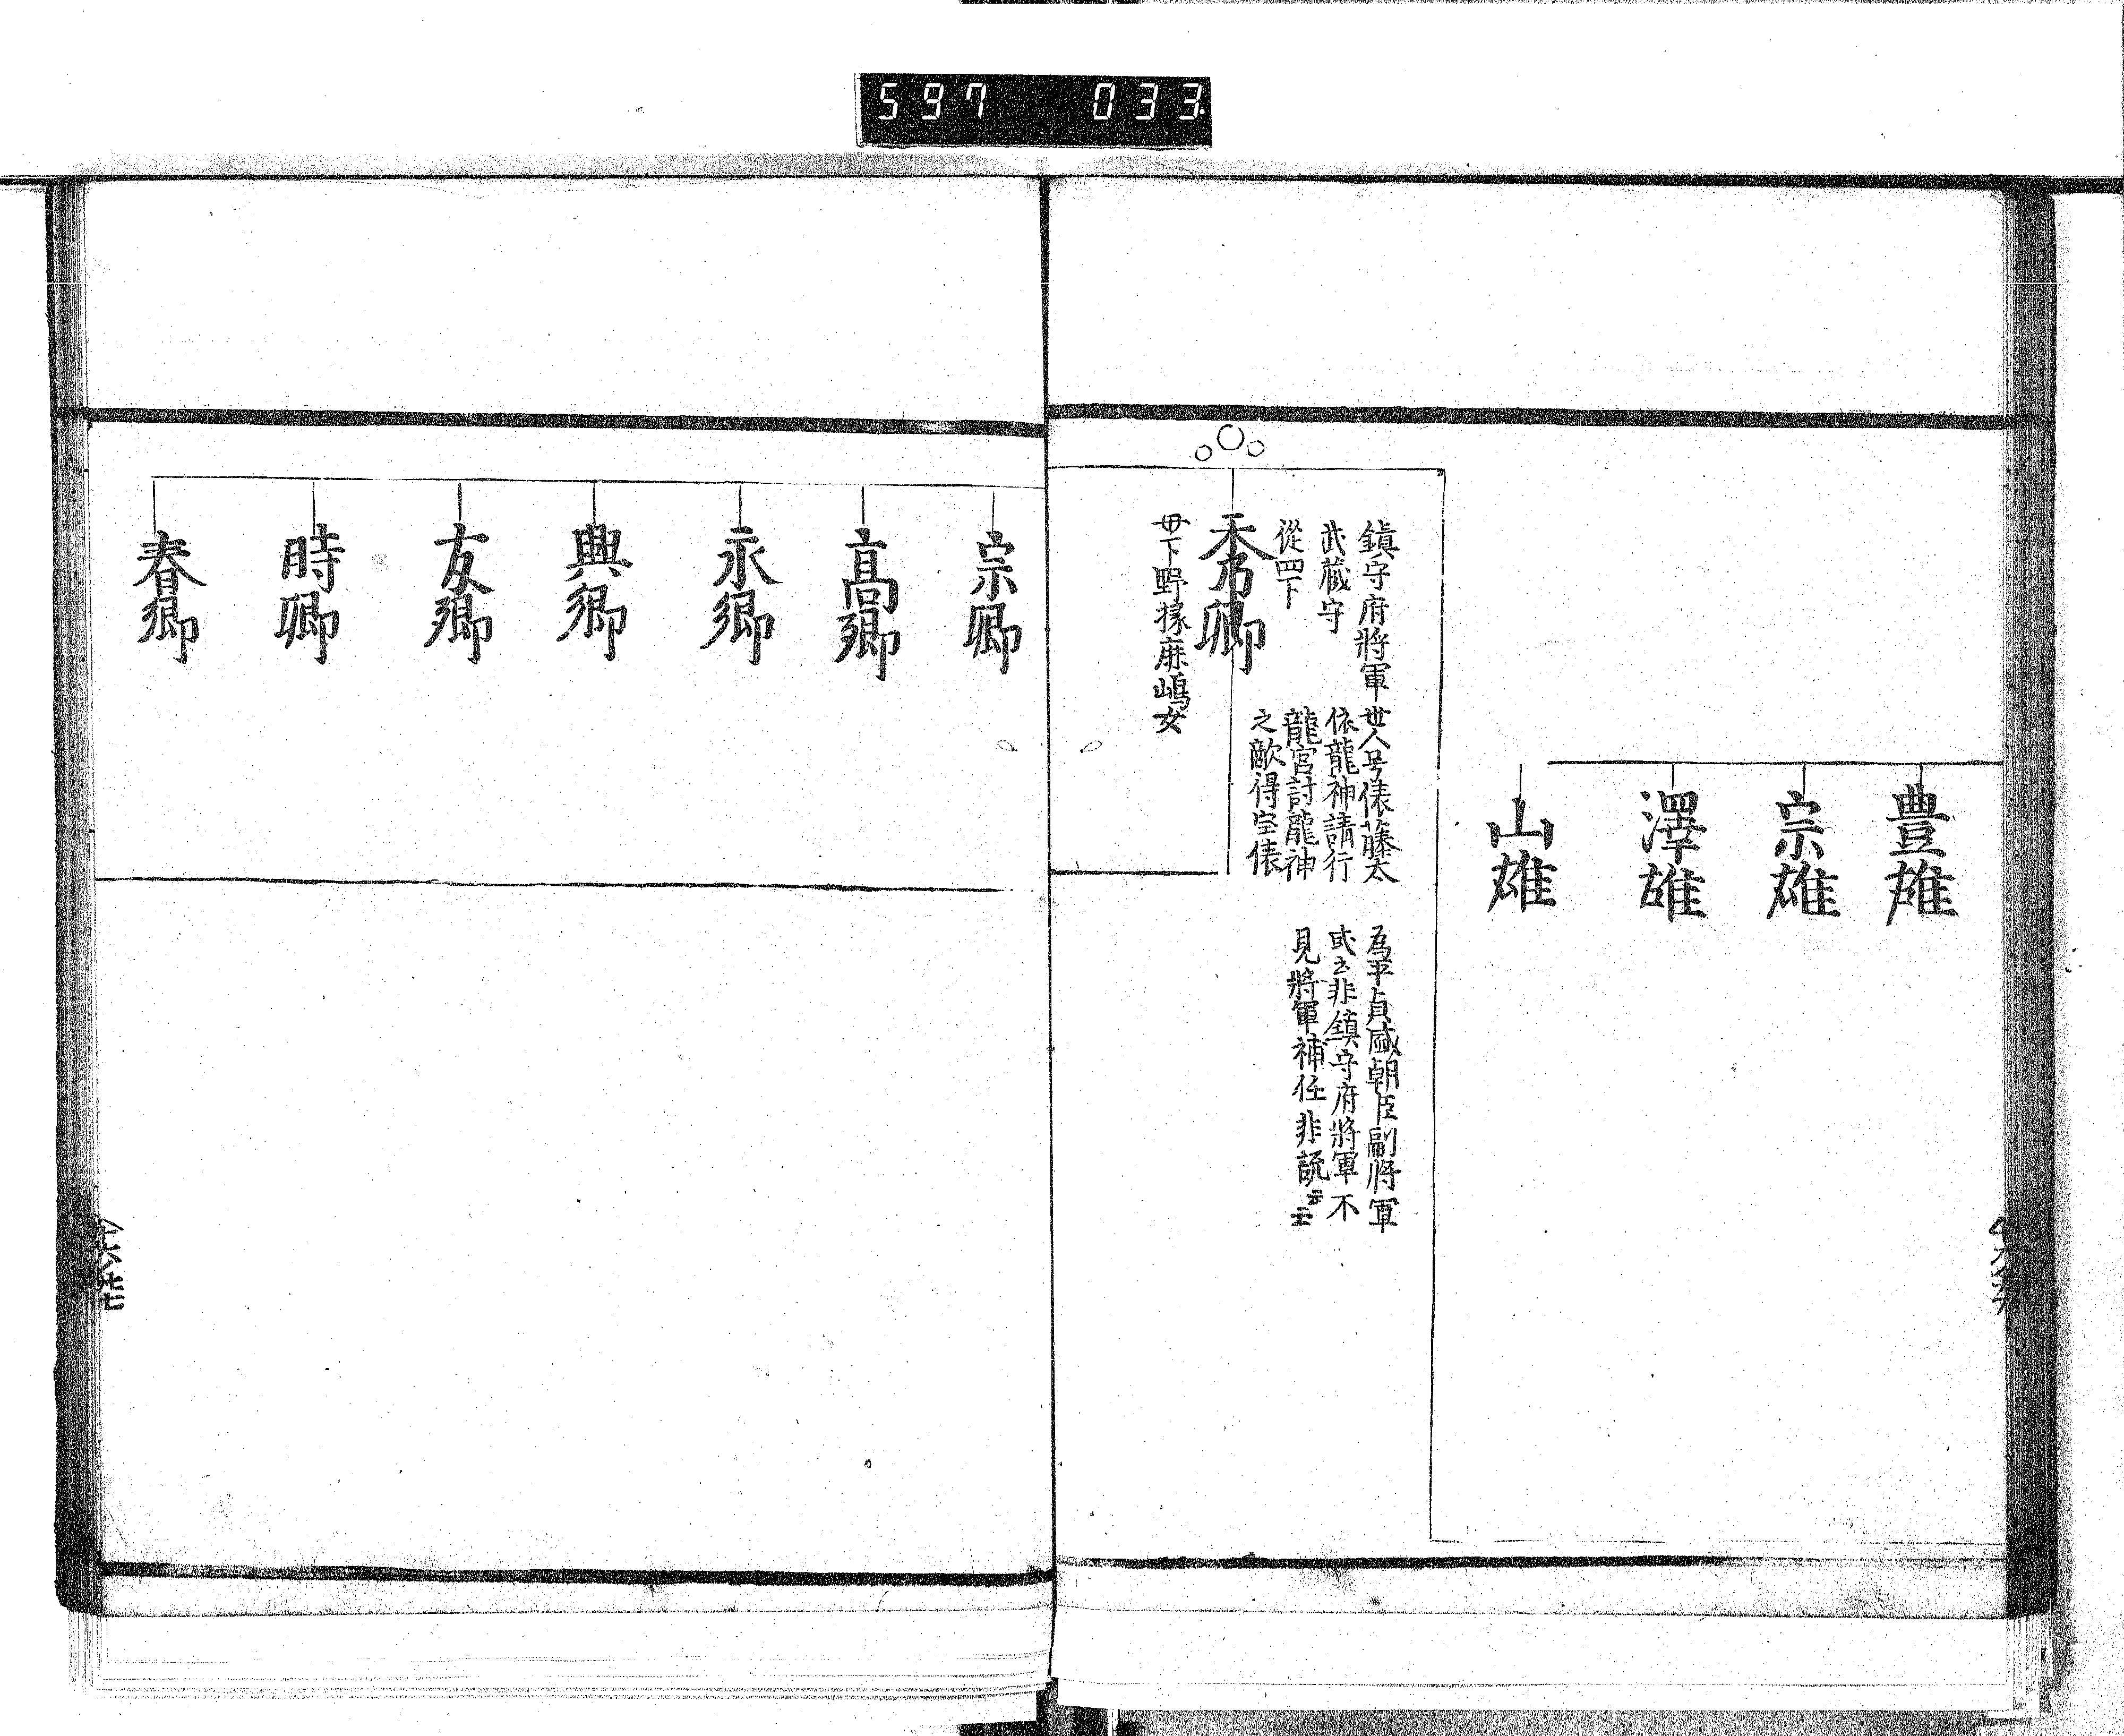 597 033
豊雄
宗雄
澤雄
山雄
鎮守府將軍
武藏守
從四下
世人号俵藤太
依龍神請行
龍宮討龍神
之敵得宝俵
為平貞盛朝臣副將軍
或云非鎮守府將軍不
見將軍補任非説云云
秀卿
母下野掾鹿嶋女
宗卿
高卿
永卿
興卿
友卿
時卿
春卿